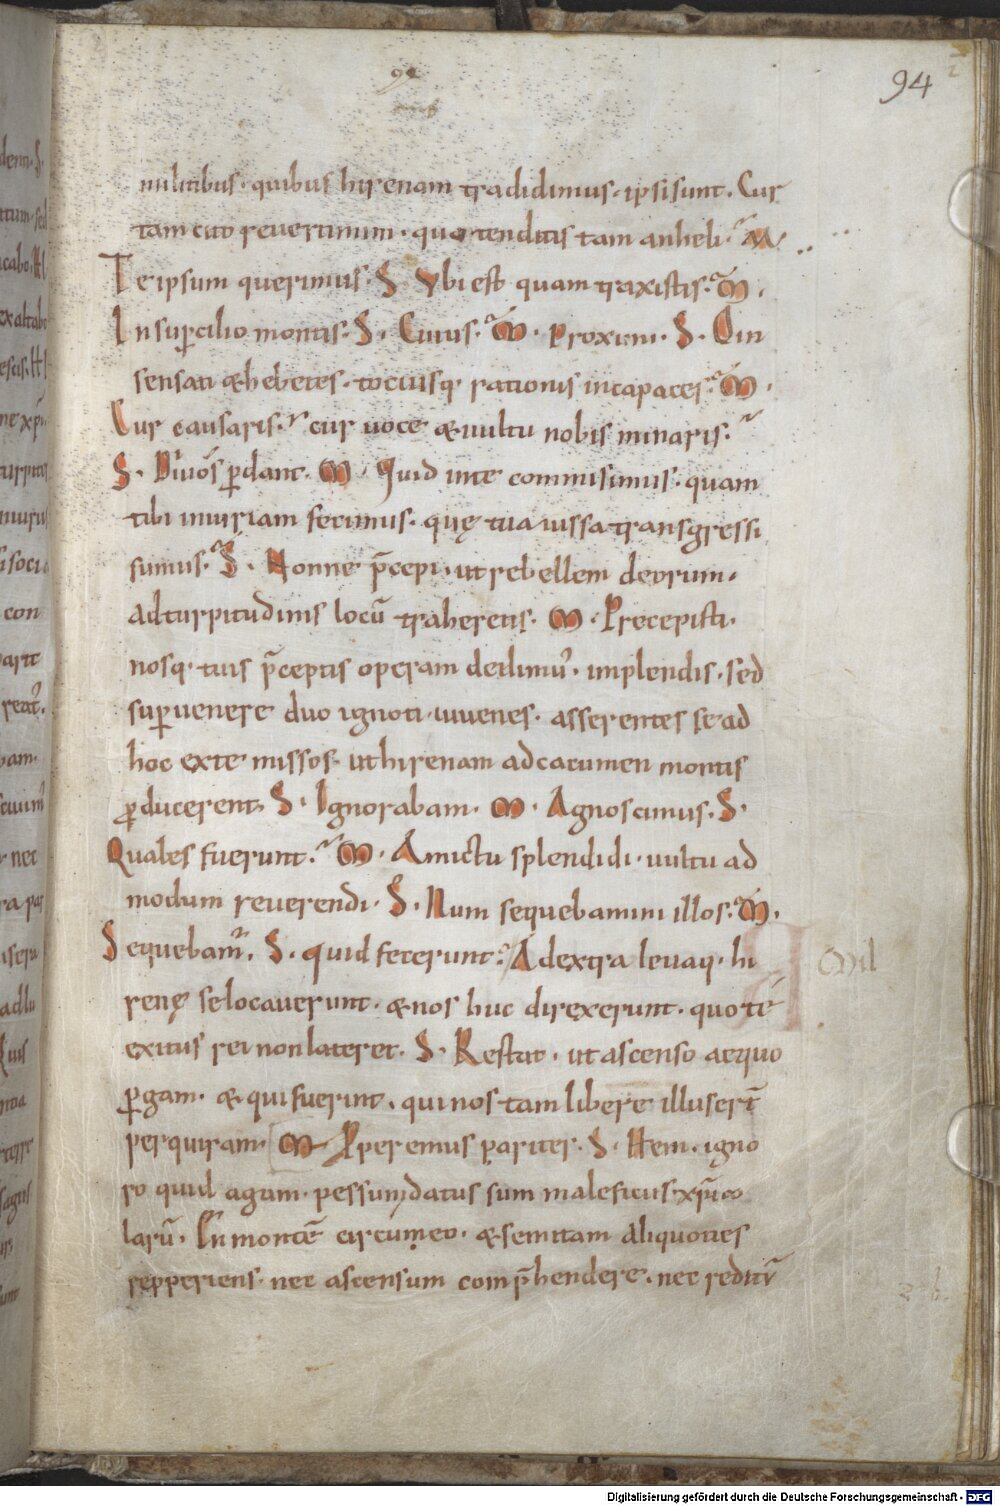 94
militibus· quibus hirenam tradidimus· ipsi sunt. Cur
tam cito reuertimini· quo tenditis tam anheli· M·
Te ipsum querimus· S· Vbi est quam traxistis· M·
In supcilio montis· S· Cuius· M· Proximi· S· O in
sensati & hebetes· tociusq· rationis incapaces· M·
Cur causaris· cur uoce & uultu nobis minaris·
S· Dii uos pdant· M· Quid in te commisimus· quam
tibi iniuriam fecimus· quę tua iussa transgressi
sumus· S· Nonne p̄cepi· ut rebellem deorum·
ad turpitudinis locū traheretis· M· Precepisti·
nosq· tuis p̄ceptis operam dedimus· implendis· sed
supuenere duo ignoti iuuenes· asserentes se ad
hoc ex te missos· ut hirenam ad cacumen montis
pducerent· S· Ignorabam· M· Agnoscimus· S·
Quales fuerunt· M· Amictu splendidi· uultu ad
modum reuerendi· S· Num sequebamini illos· M·
Sequebamur· S· quid fecerunt· A dextra leuaq· hi
M il
renę se locauerunt· & nos huc direxerunt· quo te
exitus rei non lateret· S· Restat· ut ascenso aequo
pgam· & qui fuerint· qui nos tam libere illuser̄t
perquiram· M Pperemus pariter· S· Hem· igno
ro quid agam· pessumdatus sum maleficiis xp̄ico
larū· En montē circumeo· & semitam aliquoties
repperiens· nec ascensum comp̄hendere· nec reditū
Digitalisierung gefördert durch die Deutsche Forschungsgemeinschaft - DFG